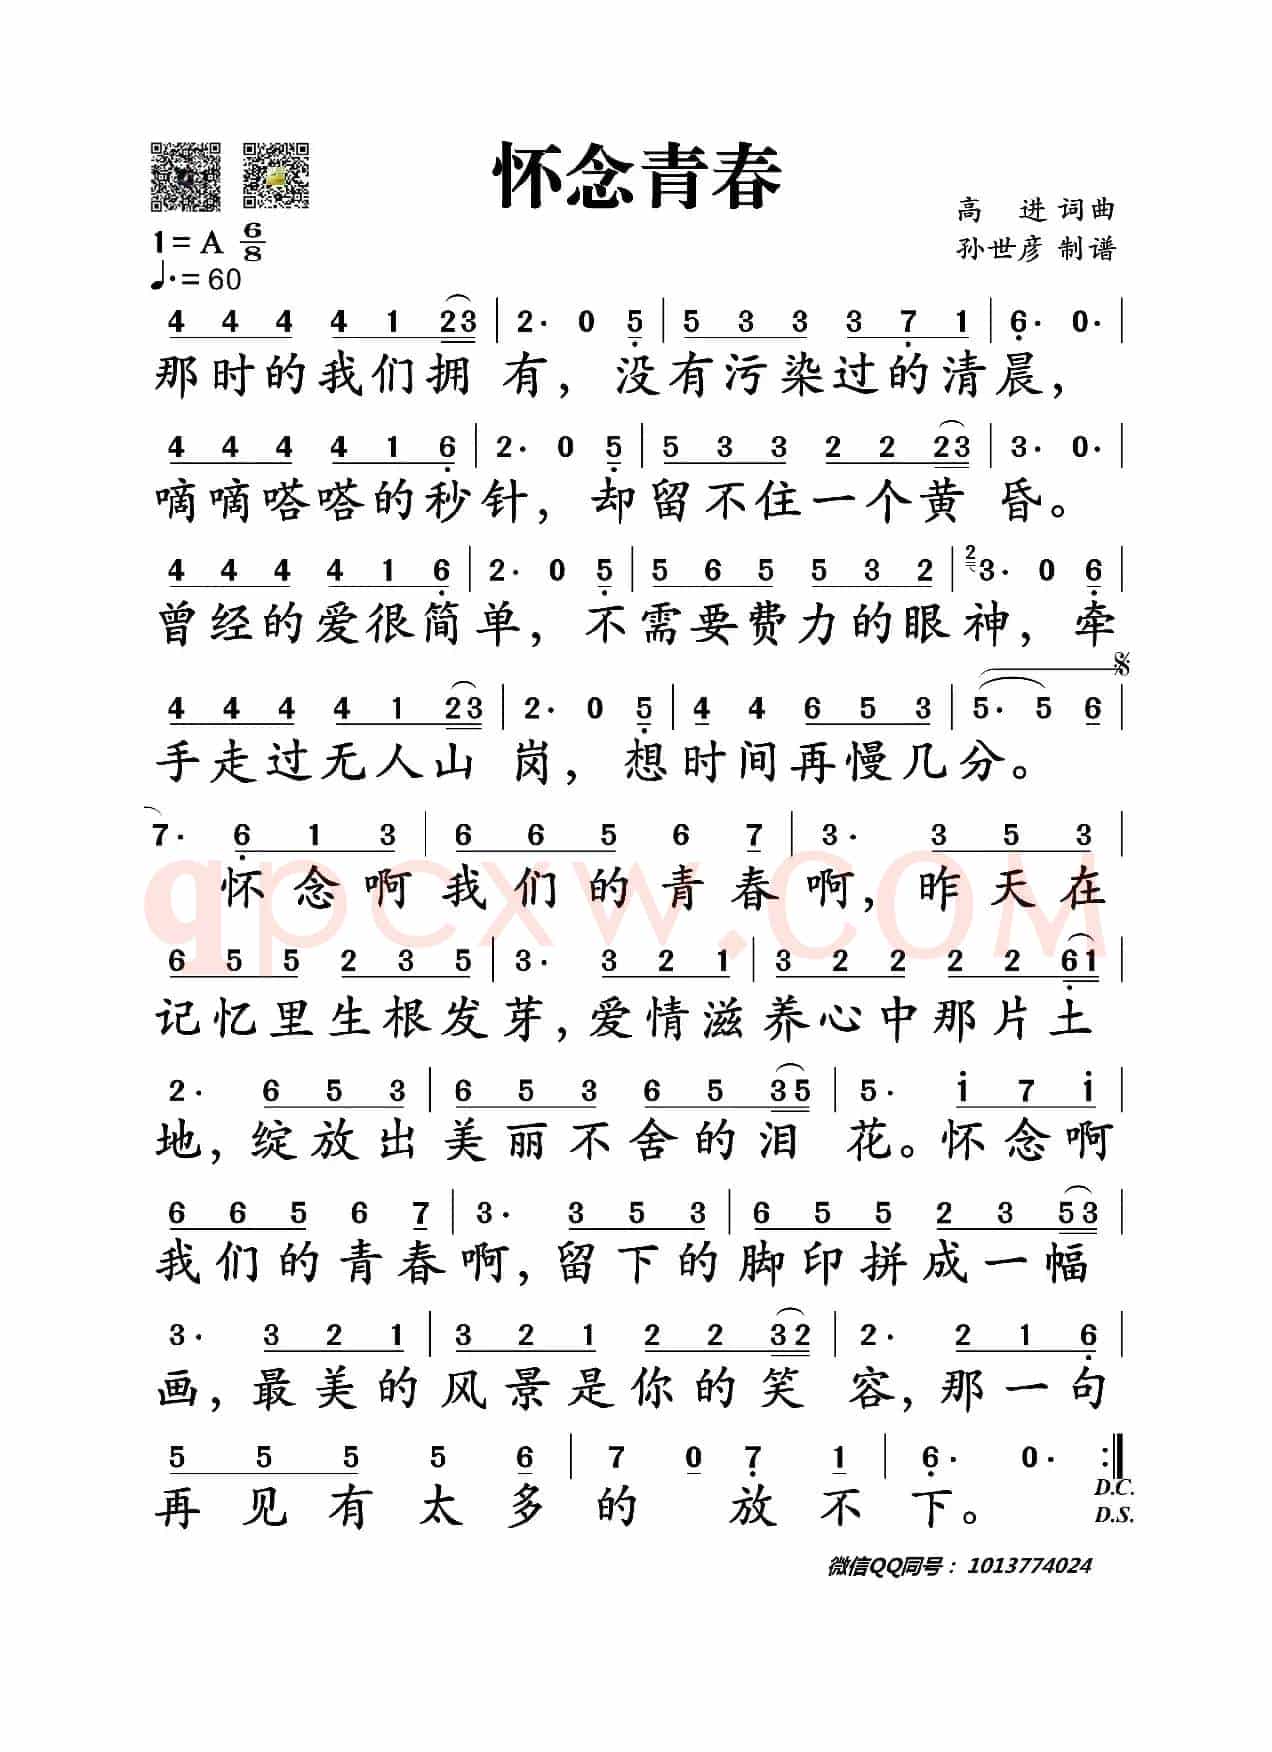 怀念青春
高 进 词曲
1=A 6/8
孙世彦 制谱
♩.=60
4 4 4 4 1 23 | 2. 0 5 | 5 3 3 3 7 1 | 6. 0. |
那时的我们拥有，没有污染过的清晨，
4 4 4 4 1 6 | 2. 0 5 | 5 3 3 2 2 23 | 3. 0. |
嘀嘀嗒嗒的秒针，却留不住一个黄昏。
4 4 4 4 1 6 | 2. 0 5 | 5 6 5 5 3 2 | 2 3. 0 6 |
曾经的爱很简单，不需要费力的眼神，牵
4 4 4 4 1 23 | 2. 0 5 | 4 4 6 5 3 | 5. 5 6 |
手走过无人山岗，想时间再慢几分。
7. 6 1 3 | 6 6 5 6 7 | 3. 3 5 3 |
怀念啊我们的青春啊，昨天在
6 5 5 2 3 5 | 3. 3 2 1 | 3 2 2 2 2 61 |
记忆里生根发芽，爱情滋养心中那片土
2. 6 5 3 | 6 5 3 6 5 35 | 5. 1 7 1 |
地，绽放出美丽不舍的泪花。怀念啊
6 6 5 6 7 | 3. 3 5 3 | 6 5 5 2 3 53 |
我们的青春啊，留下的脚印拼成一幅
3. 3 2 1 | 3 2 1 2 2 32 | 2. 2 1 6 |
画，最美的风景是你的笑容，那一句
5 5 5 5 6 | 7 0 7 1 | 6. 0. :|
再见有太多的放不下。
D.C.
D.S.
微信QQ同号：1013774024
qpcxw.COM